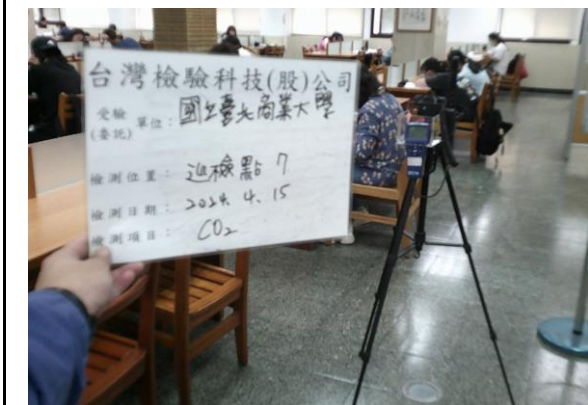 台灣檢驗科技(股)公司
受驗(委託)單位：國立臺北商業大學
檢測位置：巡檢點 7
檢測日期：2024. 4. 15
檢測項目：CO₂